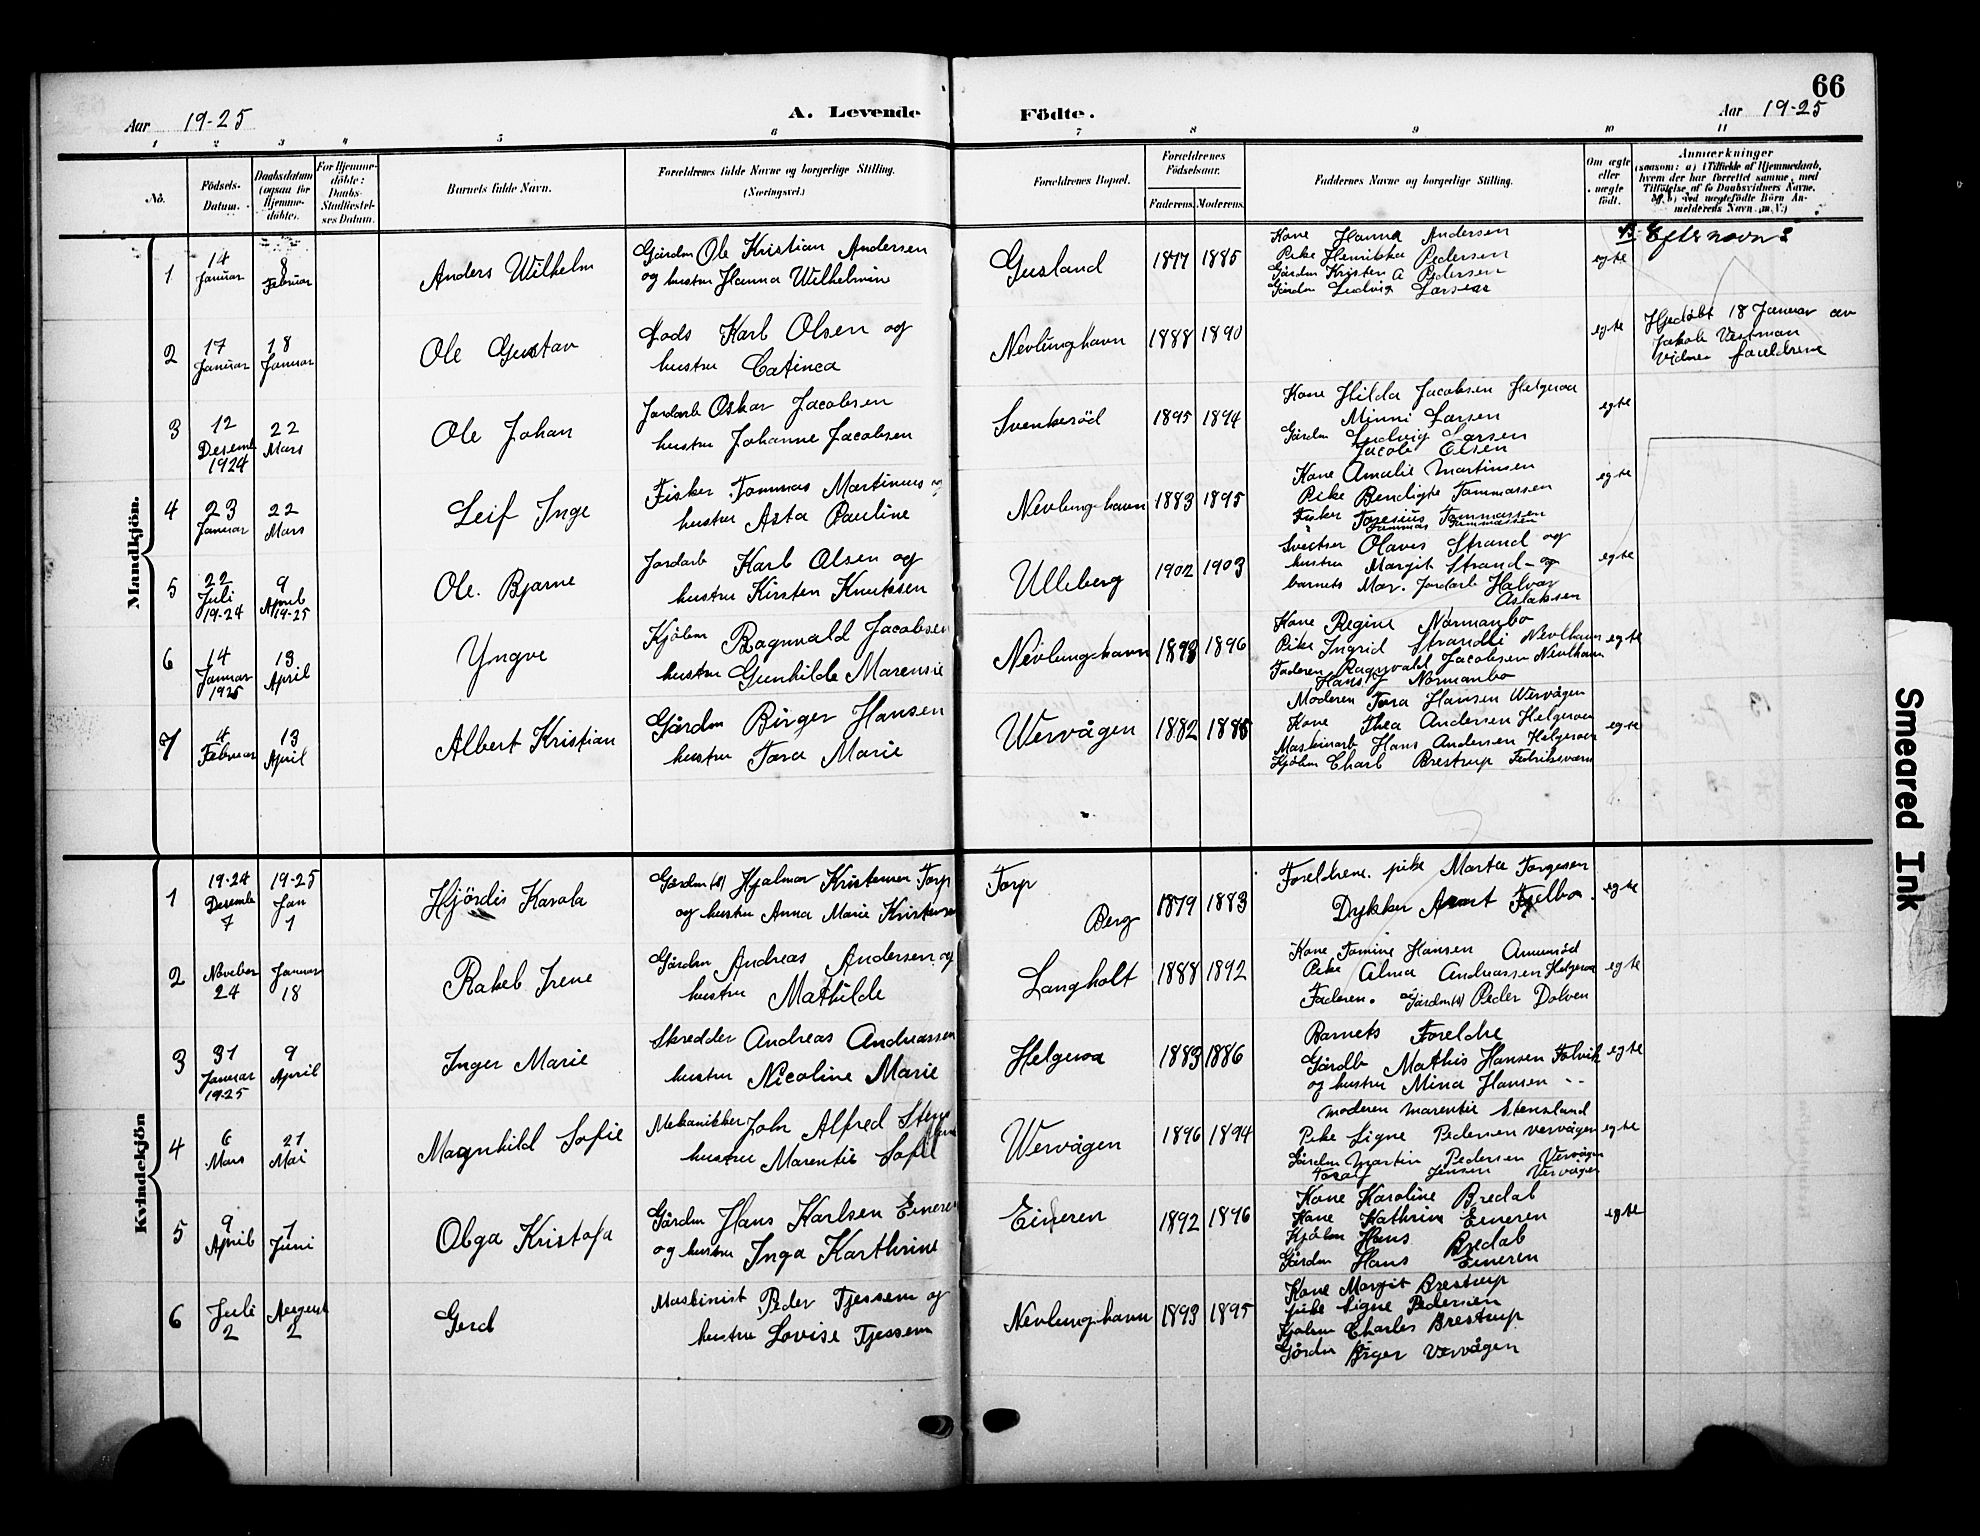 66
Aar 19-25 A. Levende Födte. Aar 19-25
1 2 3 4 5 6 7 8 9 10 11
No. Födsels-Datum. Daabsdatum (ogsaa for Hjemme-döbte). For Hjemme-döbte: Daabs-Stadfæstel-ses Datum. Barnets fulde Navn. Forældrenes fulde Navne og borgerlige Stilling. (Næringsvei.) Forældrenes Bopæl. Forældrenes Födselsaar. Faderens. Moderens. Faddernes Navne og borgerlige Stilling. Om ægte eller uægte födt. Anmærkninger
Mandkjön.
1 14 Januar 8 Februar Anders Wilhelm
Gårdm Ole Kristian Andersen
og hustru Hanna Wilhelmine
Gusland 1877 1885
Kone Hanna Andersen
Pike Henrikka Pedersen
Gårdm Kristen A Pedersen
Gårdm Ludvig Larsen
egte
Efternavn?
2 17 Januar 18 Januar Ole Gustav
Lods Karl Olsen og
hustru Catinca
Nevlunghavn 1888 1890
egte
Hjedöbt 18 Januar av
Jakob Vestman
Vidner foreldrene
3 12 Desemb 1924 22 Mars Ole Johan
Jordarb Oskar Jacobsen
hustru Johanne Jacobsen
Svenkeröd 1895 1894
Kone Hilda Jacobsen Helgeroa
Minni Larsen
Gårdm Ludvig Larsen
Jacob Olsen
egte
4 23 Januar 22 Mars Leif Inge
Fisker Tommas Martinius og
hustru Asta Pauline
Nevlunghavn 1883 1895
Kone Amalie Martinsen
Pike Bendigte Tommassen
Fisker Toresius Tommassen
Tommas Tommassen
egte
5 22 Juli 19-24 9 April 19-25 Ole Bjarne
Jordarb Karl Olsen og
hustru Kirsten Knutssen
Ulleberg 1902 1903
Olaves Strand og
hustru Margit Strand - og
barnets Mor. Jordarb Halvor
Aslaksen
egte
6 14 Januar 1925 13 April Yngve
Kjöbm Ragnvald Jacobsen
hustru Gunhilde Marensie
Nevlunghavn 1893 1896
Kone Regine Normanbo
Pike Ingrid Strandli Nevlhavn
Faderen Ragnvald Jacobsen Nevlhavn
Hans J Normanbo
egte
7 4 Februar 13 April Albert Kristian
Gårdm Birger Hansen
hustru Tora Marie
Wervågen 1882 1886
Moderen Tora Hansen Wervågen
Kone Thea Andersen Helgeroa
Maskinarb Hans Andersen Helgeroa
Kjöbm Charl Brestrup Fedriksværn
egte
Kvindekjön
1 19-24 Desemb 7 19-25 Jan 1 Hjördis Karola
Gårdm (s) Hjalmar Kristensen Torp
og hustru Anna Marie Kristensen
Torp
Berg 1879 1883
Foreldrene. pike Marta Torgesen
Dykker Arnt Fjelbo
egte
2 Noveber 24 Januar 18 Rakel Irene
Gårdm Andreas Andersen og
hustru Mathilde
Langholt 1888 1892
Kone Tomine Hansen Amunröd
Pike Alma Andreassen Helgeroa
Faderen. og Gårdm (s) Peder Dolven
egte
3 31 Januar 19-25 9 April Inger Marie
Skredder Andreas Andreassen
hustru Nicoline Marie
Helgeroa 1883 1886
Barnets Foreldre
Gårdb Mathis Hansen Folvik
og hustru Mina Hansen - -
egte
4 6 Mars 21 Mai Magnhild Sofie
Mekanikker John Alfred Stens
land
hustru Marentie Sofie
Wervågen 1896 1894
moderen Marentie Stensland
Pike Signe Pedersen Vervågen
Gårdm Martin Pedersen Vervågen
Toralf Jensen Vervågen
egte
5 9 April 7 Juni Olga Kristofa
Gårdm Hans Karlsen Eineren
og hustru Inga Karthrine
Eineren 1892 1896
Kone Karoline Bredal
Kone Kathrine Eineren
Kjöbm Hans Bredal
Gårdm Hans Eineren
egte
6 Juli 2 August 2 Gerd
Maskinist Peder Tjessem og
hustru Lovise Tjessem
Nevlunghavn 1893 1895
Kone Margit Brestrup
pike Signe Pedersen
Kjöbm Charles Brestrup
Gårdm Birger Vervågen
Smeared Ink